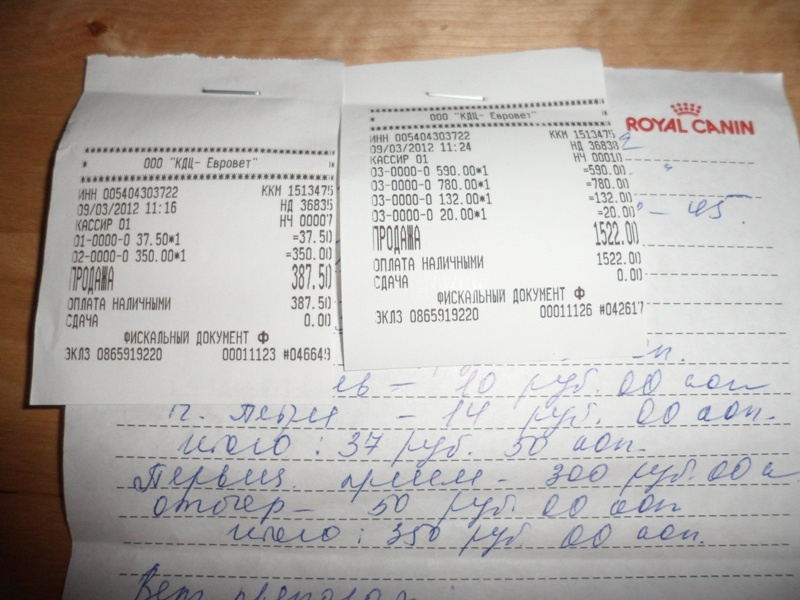 ООО "КДЦ- Евровет"
ИНН 005404303722 ККМ 1513475
09/03/2012 11:16 НД 36835
КАССИР 01 НЧ 00007
01-0000-0 37.50*1 =37.50
02-0000-0 350.00*1 =350.00
ПРОДАЖА 387.50
ОПЛАТА НАЛИЧНЫМИ 387.50
СДАЧА 0.00
ФИСКАЛЬНЫЙ ДОКУМЕНТ Ф
ЭКЛЗ 0865919220 00011123 #046649
ООО "КДЦ- Евровет"
ИНН 005404303722 ККМ 1513475
09/03/2012 11:24 НД 36838
КАССИР 01 НЧ 00010
03-0000-0 590.00*1 =590.00
03-0000-0 780.00*1 =780.00
03-0000-0 132.00*1 =132.00
03-0000-0 20.00*1 =20.00
ПРОДАЖА 1522.00
ОПЛАТА НАЛИЧНЫМИ 1522.00
СДАЧА 0.00
ФИСКАЛЬНЫЙ ДОКУМЕНТ Ф
ЭКЛЗ 0865919220 00011126 #042617
ROYAL CANIN
- 45
- 10 руб. 00 коп
- 14 руб. 00 коп.
итого : 37 руб. 50 коп.
прием - 300 руб. 00 к
- 50 руб. 00 коп
итого : 350 руб 00 коп.
Вет препарат